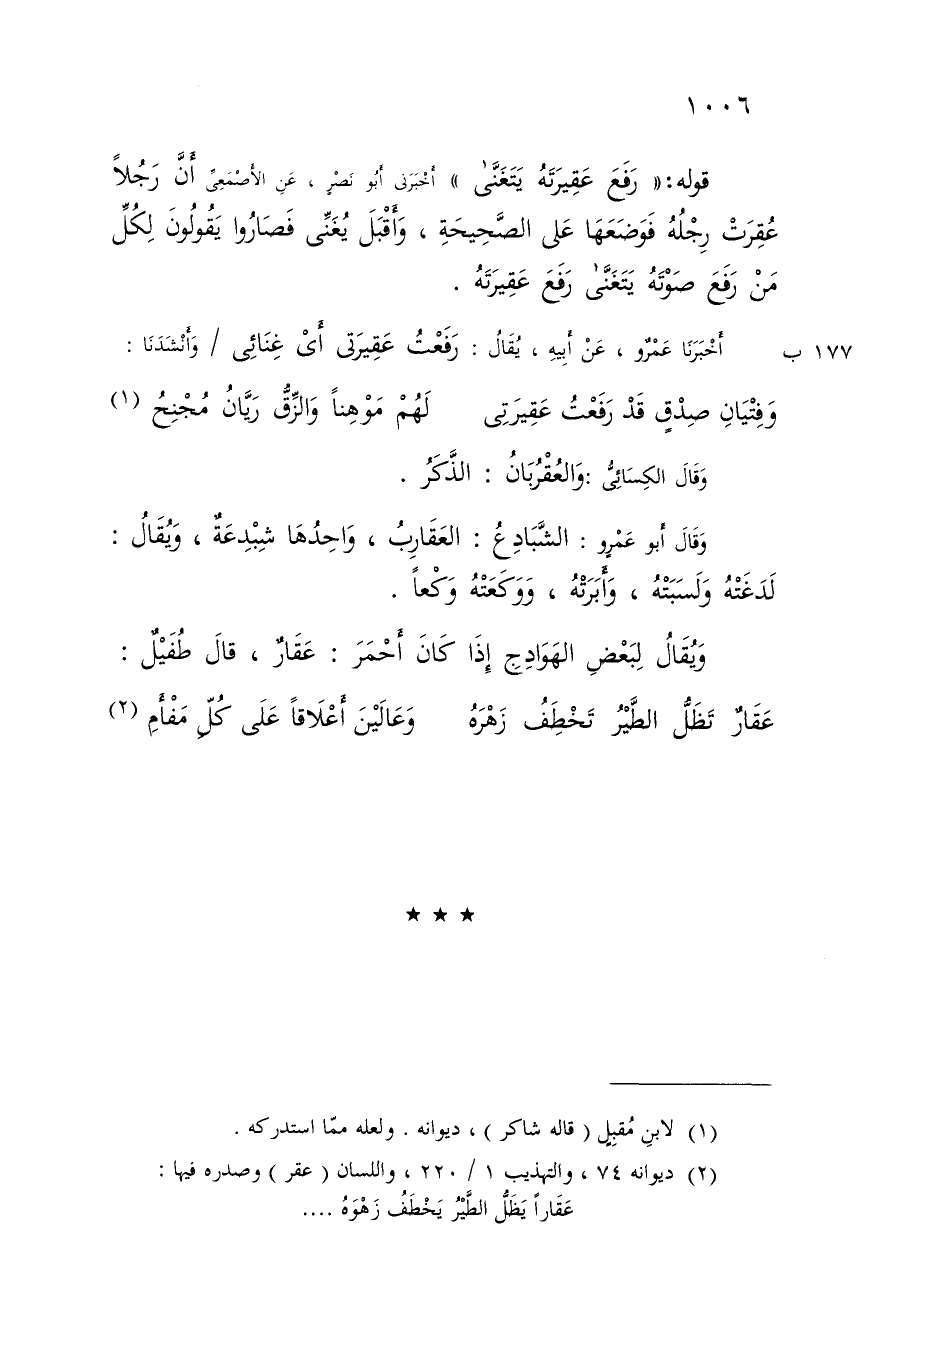 ١٠٠٦
قوله: « رَفَعَ عَقِيرَتَهُ يَتَغَنَّىٰ » أَخْبَرَنِى أَبُو نَصْرٍ ، عَنِ الأَصْمَعِىِّ أَنَّ رَجُلاً
عُقِرَتْ رِجْلُهُ فَوَضَعَهَا عَلى الصَّحِيحَةِ ، وَأَقْبَلَ يُغَنِّى فَصَارُوا يَقُولُونَ لِكُلِّ
مَنْ رَفَعَ صَوْتَهُ يَتَغَنَّىٰ رَفَعَ عَقِيرَتَهُ .
١٧٧ ب أَخْبَرَنَا عَمْرٌو ، عَنْ أَبِيهِ ، يُقَالُ : رَفَعْتُ عَقِيرَتِى أَىْ غِنَائِى / وَأَنْشَدَنَا :
وَفِتْيَانِ صِدْقٍ قَدْ رَفَعْتُ عَقِيرَتِى لَهُمْ مَوْهِناً وَالزِّقُّ رَيَّانُ مُجْنِحُ (١)
وَقَالَ الكِسَائِىُّ :وَالعُقْرُبَانُ : الذَّكَرُ .
وَقَالَ أَبو عَمْرٍو : الشَّبَادِعُ : العَقَارِبُ ، وَاحِدُهَا شِبْدِعَةٌ ، وَيُقَالُ :
لَدَغَتْهُ وَلَسَبَتْهُ ، وَأَبَرَتْهُ ، وَوَكَعَتْهُ وَكْعاً .
وَيُقَالُ لِبَعْضِ الهَوَادِجِ إِذَا كَانَ أَحْمَرَ : عَقَارٌ ، قالَ طُفَيْلٌ :
عَقَارٌ تَظَلُّ الطَّيْرُ تَخْطَفُ زَهْرَهُ وَعَالَيْنَ أَعْلَاقاً عَلَى كُلِّ مَفْأَمِ (٢)
★ ★ ★
(١) لابنِ مُقبِلٍ ( قاله شاكر ) ، ديوانه . ولعله ممّا استدركه .
(٢) ديوانه ٧٤ ، والتهذيب ١ / ٢٢٠ ، واللسان ( عقر ) وصدره فيها :
عَقَاراً يَظَلُّ الطَّيْرُ يَخْطَفُ زَهْوَهُ ....